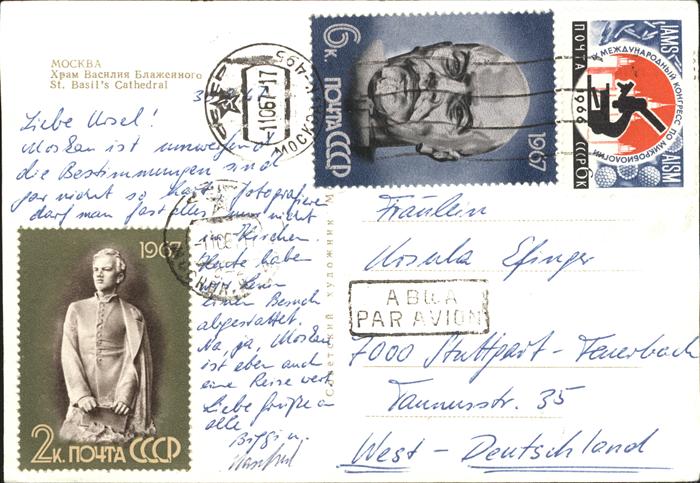 МОСКВА
Храм Василия Блаженного
St. Basil's Cathedral
Liebe Ursel!
Moskau ist umwerfend
die Bestimmungen sind
gar nicht so hart. Fotografieren
darf man fast alles, nur nicht
in Kirchen.
Heute haben
wir Lenin
einen Besuch
abgestattet.
Na ja, Moskau
ist eben auch
eine Reise wert.
Liebe Grüße an
alle
Manfred
6 К ПОЧТА СССР
1967
ПОЧТА 1966 СССР 6К
IX МЕЖДУНАРОДНЫЙ КОНГРЕСС ПО МИКРОБИОЛОГИИ
IAMS
AISM
-11067-17
МОСКВА К-495
1967
2 К. ПОЧТА СССР
Советский художник М
Fräulein
Ursula Efinger
АВИА
PAR AVION
7000 Stuttgart-Feuerbach
Taunusstr. 35
West-Deutschland